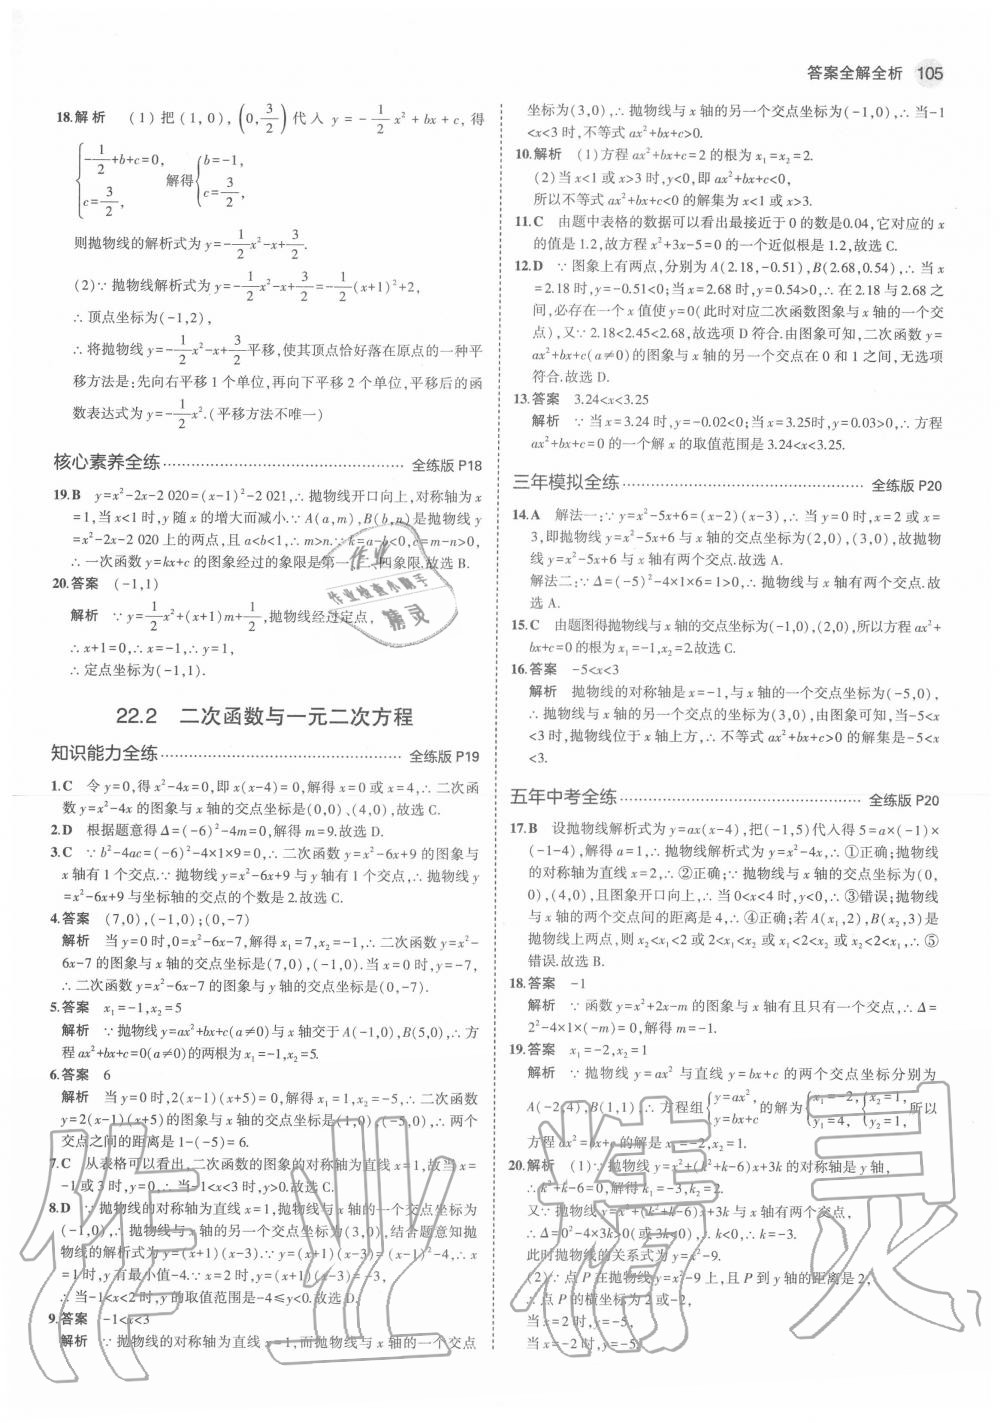 答案全解全析 105
18.解析 (1)把(1,0),(0,3/2)代入 y=-1/2x²+bx+c,得
{-1/2+b+c=0, c=3/2, 解得{b=-1, c=3/2,
则抛物线的解析式为y=-1/2x²-x+3/2.
(2)∵抛物线解析式为y=-1/2x²-x+3/2=-1/2(x+1)²+2,
∴顶点坐标为(-1,2),
∴将抛物线y=-1/2x²-x+3/2平移,使其顶点恰好落在原点的一种平
移方法是:先向右平移1个单位,再向下平移2个单位,平移后的函
数表达式为y=-1/2x².(平移方法不唯一)
核心素养全练 全练版P18
19.B y=x²-2x-2 020=(x-1)²-2 021,∴抛物线开口向上,对称轴为x
=1,当x<1时,y随x的增大而减小.∵A(a,m),B(b,n)是抛物线y
=x²-2x-2 020上的两点,且a<b<1,∴m>n.∵k=a-b<0,c=m-n>0,
∴一次函数y=kx+c的图象经过的象限是第一、二、四象限.故选B.
20.答案 (-1,1)
解析 ∵y=1/2x²+(x+1)m+1/2,抛物线经过定点,
∴x+1=0,∴x=-1,∴y=1,
∴定点坐标为(-1,1).
22.2 二次函数与一元二次方程
知识能力全练 全练版P19
1.C 令y=0,得x²-4x=0,即x(x-4)=0,解得x=0或x=4,∴二次函
数y=x²-4x的图象与x轴的交点坐标是(0,0)、(4,0),故选C.
2.D 根据题意得Δ=(-6)²-4m=0,解得m=9.故选D.
3.C ∵b²-4ac=(-6)²-4×1×9=0,∴二次函数y=x²-6x+9的图象与
x轴有1个交点.∵抛物线y=x²-6x+9与y轴有1个交点,∴抛物线y
=x²-6x+9与坐标轴的交点的个数是2.故选C.
4.答案 (7,0),(-1,0);(0,-7)
解析 当y=0时,0=x²-6x-7,解得x₁=7,x₂=-1,∴二次函数y=x²-
6x-7的图象与x轴的交点坐标是(7,0),(-1,0).当x=0时,y=-7,
∴二次函数y=x²-6x-7的图象与y轴的交点坐标是(0,-7).
5.答案 x₁=-1,x₂=5
解析 ∵抛物线y=ax²+bx+c(a≠0)与x轴交于A(-1,0),B(5,0),∴方
程ax²+bx+c=0(a≠0)的两根为x₁=-1,x₂=5.
6.答案 6
解析 当y=0时,2(x-1)(x+5)=0,解得x₁=1,x₂=-5,∴二次函数
y=2(x-1)(x+5)的图象与x轴的交点坐标是(1,0),(-5,0),∴两个
交点之间的距离是1-(-5)=6.
7.C 从表格可以看出,二次函数的图象的对称轴为直线x=1,故当x=
-1或3时,y=0.∴当-1<x<3时,y>0.故选C.
8.D ∵抛物线的对称轴为直线x=1,抛物线与x轴的一个交点坐标为
(-1,0),∴抛物线与x轴的另一个交点坐标为(3,0),结合题意知抛
物线的解析式为y=(x+1)(x-3).∵y=(x+1)(x-3)=(x-1)²-4,∴x
=1时,y有最小值-4.∵x=2时,y=(x+1)(x-3)=-3,
∴当-1<x<2时,y的取值范围是-4≤y<0.故选D.
9.答案 -1<x<3
解析 ∵抛物线的对称轴为直线x=1,而抛物线与x轴的一个交点
坐标为(3,0),∴抛物线与x轴的另一个交点坐标为(-1,0),∴当-1
<x<3时,不等式ax²+bx+c>0.
10.解析 (1)方程ax²+bx+c=2的根为x₁=x₂=2.
(2)当x<1或x>3时,y<0,即ax²+bx+c<0,
所以不等式ax²+bx+c<0的解集为x<1或x>3.
11.C 由题中表格的数据可以看出最接近于0的数是0.04,它对应的x
的值是1.2,故方程x²+3x-5=0的一个近似根是1.2,故选C.
12.D ∵图象上有两点,分别为A(2.18,-0.51),B(2.68,0.54),∴当x
=2.18时,y=-0.51<0;当x=2.68时,y=0.54>0,∴在2.18与2.68之
间,必存在一个x值使y=0(此时对应二次函数图象与x轴的一个交
点),又∵2.18<2.45<2.68,故选项D符合.由图象可知,二次函数y=
ax²+bx+c(a≠0)的图象与x轴的另一个交点在0和1之间,无选项
符合.故选D.
13.答案 3.24<x<3.25
解析 ∵当x=3.24时,y=-0.02<0;当x=3.25时,y=0.03>0,∴方程
ax²+bx+c=0的一个解x的取值范围是3.24<x<3.25.
三年模拟全练 全练版P20
14.A 解法一:∵y=x²-5x+6=(x-2)(x-3),∴当y=0时,x=2或x=
3,即抛物线y=x²-5x+6与x轴的交点坐标为(2,0),(3,0),故抛物
线y=x²-5x+6与x轴有两个交点.故选A.
解法二:∵Δ=(-5)²-4×1×6=1>0,∴抛物线与x轴有两个交点.故
选A.
15.C 由题图得抛物线与x轴的交点坐标为(-1,0),(2,0),所以方程ax²+
bx+c=0的根为x₁=-1,x₂=2,故选C.
16.答案 -5<x<3
解析 抛物线的对称轴是x=-1,与x轴的一个交点为(-5,0),
∴抛物线与x轴的另一个交点的坐标为(3,0),由函数图象可知,当-5<
x<3时,抛物线位于x轴上方,∴不等式ax²+bx+c>0的解集是-5<x
<3.
五年中考全练 全练版P20
17.B 设抛物线解析式为y=ax(x-4),把(-1,5)代入得5=a×(-1)×
(-1-4),解得a=1,∴抛物线解析式为y=x²-4x,∴①正确;抛物线
的对称轴为直线x=2,∴②正确;∵抛物线与x轴的交点坐标为(0,
0),(4,0),且图象开口向上,∴当0<x<4时,y<0,∴③错误;抛物线
与x轴的两个交点间的距离是4,∴④正确;若A(x₁,2),B(x₂,3)是
抛物线上两点,则x₂<x₁<2或2<x₁<x₂或x₁<2<x₂或x₂<2<x₁,∴⑤
错误.故选B.
18.答案 -1
解析 ∵函数y=x²+2x-m的图象与x轴有且只有一个交点,∴Δ=
2²-4×1×(-m)=0,解得m=-1.
19.答案 x₁=-2,x₂=1
解析 ∵抛物线y=ax²与直线y=bx+c的两个交点坐标分别为
A(-2,4),B(1,1),∴方程组{y=ax², y=bx+c 的解为{x₁=-2, y₁=4, {x₂=1, y₂=1, 所以
方程ax²=bx+c的解是x₁=-2,x₂=1.
20.解析 (1)∵抛物线y=x²+(k²+k-6)x+3k的对称轴是y轴,
∴k²+k-6=0,解得k₁=-3,k₂=2.
又∵抛物线y=x²+(k²+k-6)x+3k与x轴有两个交点,
∴Δ=0²-4×3k>0(或3k<0),∴k<0,∴k=-3.
此时抛物线的关系式为y=x²-9.
(2)∵点P在抛物线y=x²-9上,且P到y轴的距离是2,
∴点P的横坐标为2或-2,
当x=2时,y=-5,
当x=-2时,y=-5.
作业
作业检查小助手
精灵
作业精灵